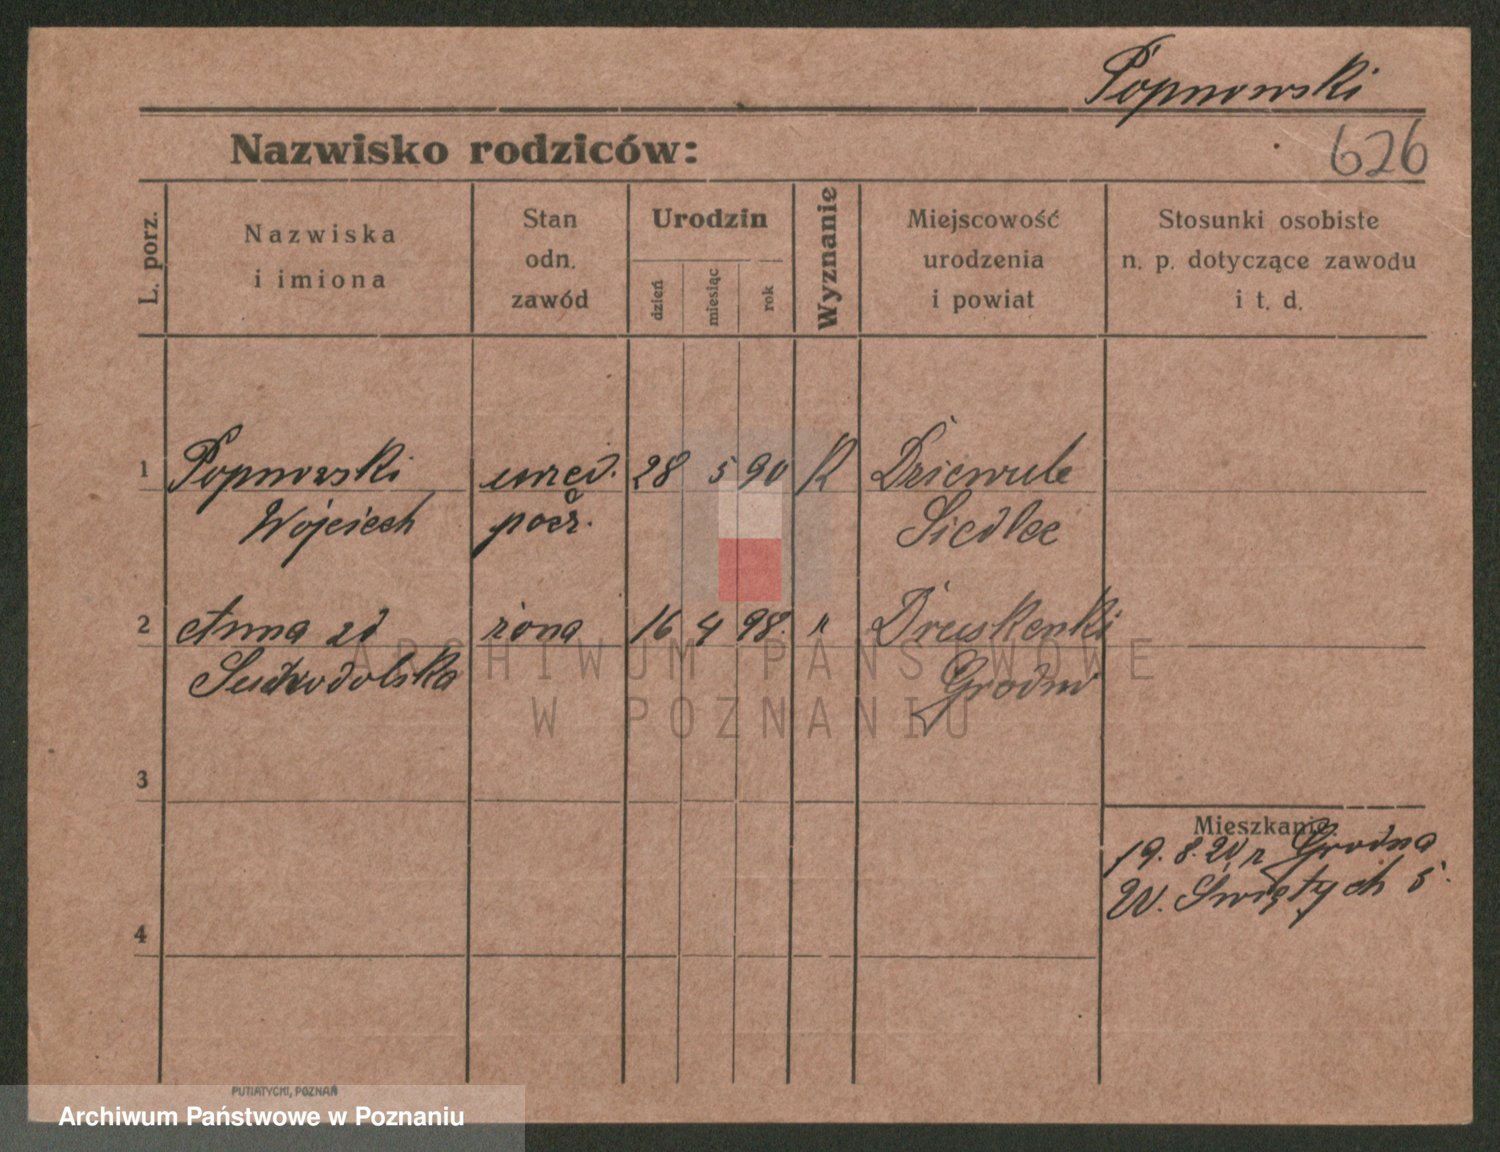 Popnowski
Nazwisko rodziców:
626
L. porz.
Nazwiska
i imiona
Stan
odn.
zawód
Urodzin
dzień
miesiąc
rok
Wyznanie
Miejscowość
urodzenia
i powiat
Stosunki osobiste
n. p. dotyczące zawodu
i t. d.
1 Popnowski urzęd. 28 5 90 R Dziewule
Wojciech pocz. Siedlce
2 Anna zd żona 16 4 98. " Druskenki
Suchodolska Grodno
3
Mieszkanie:
19. 8. 20 z Grodna
W. Świętych 5.
4
ARCHIWUM PAŃSTWOWE
W POZNANIU
PUTIATYCKI, POZNAŃ
Archiwum Państwowe w Poznaniu